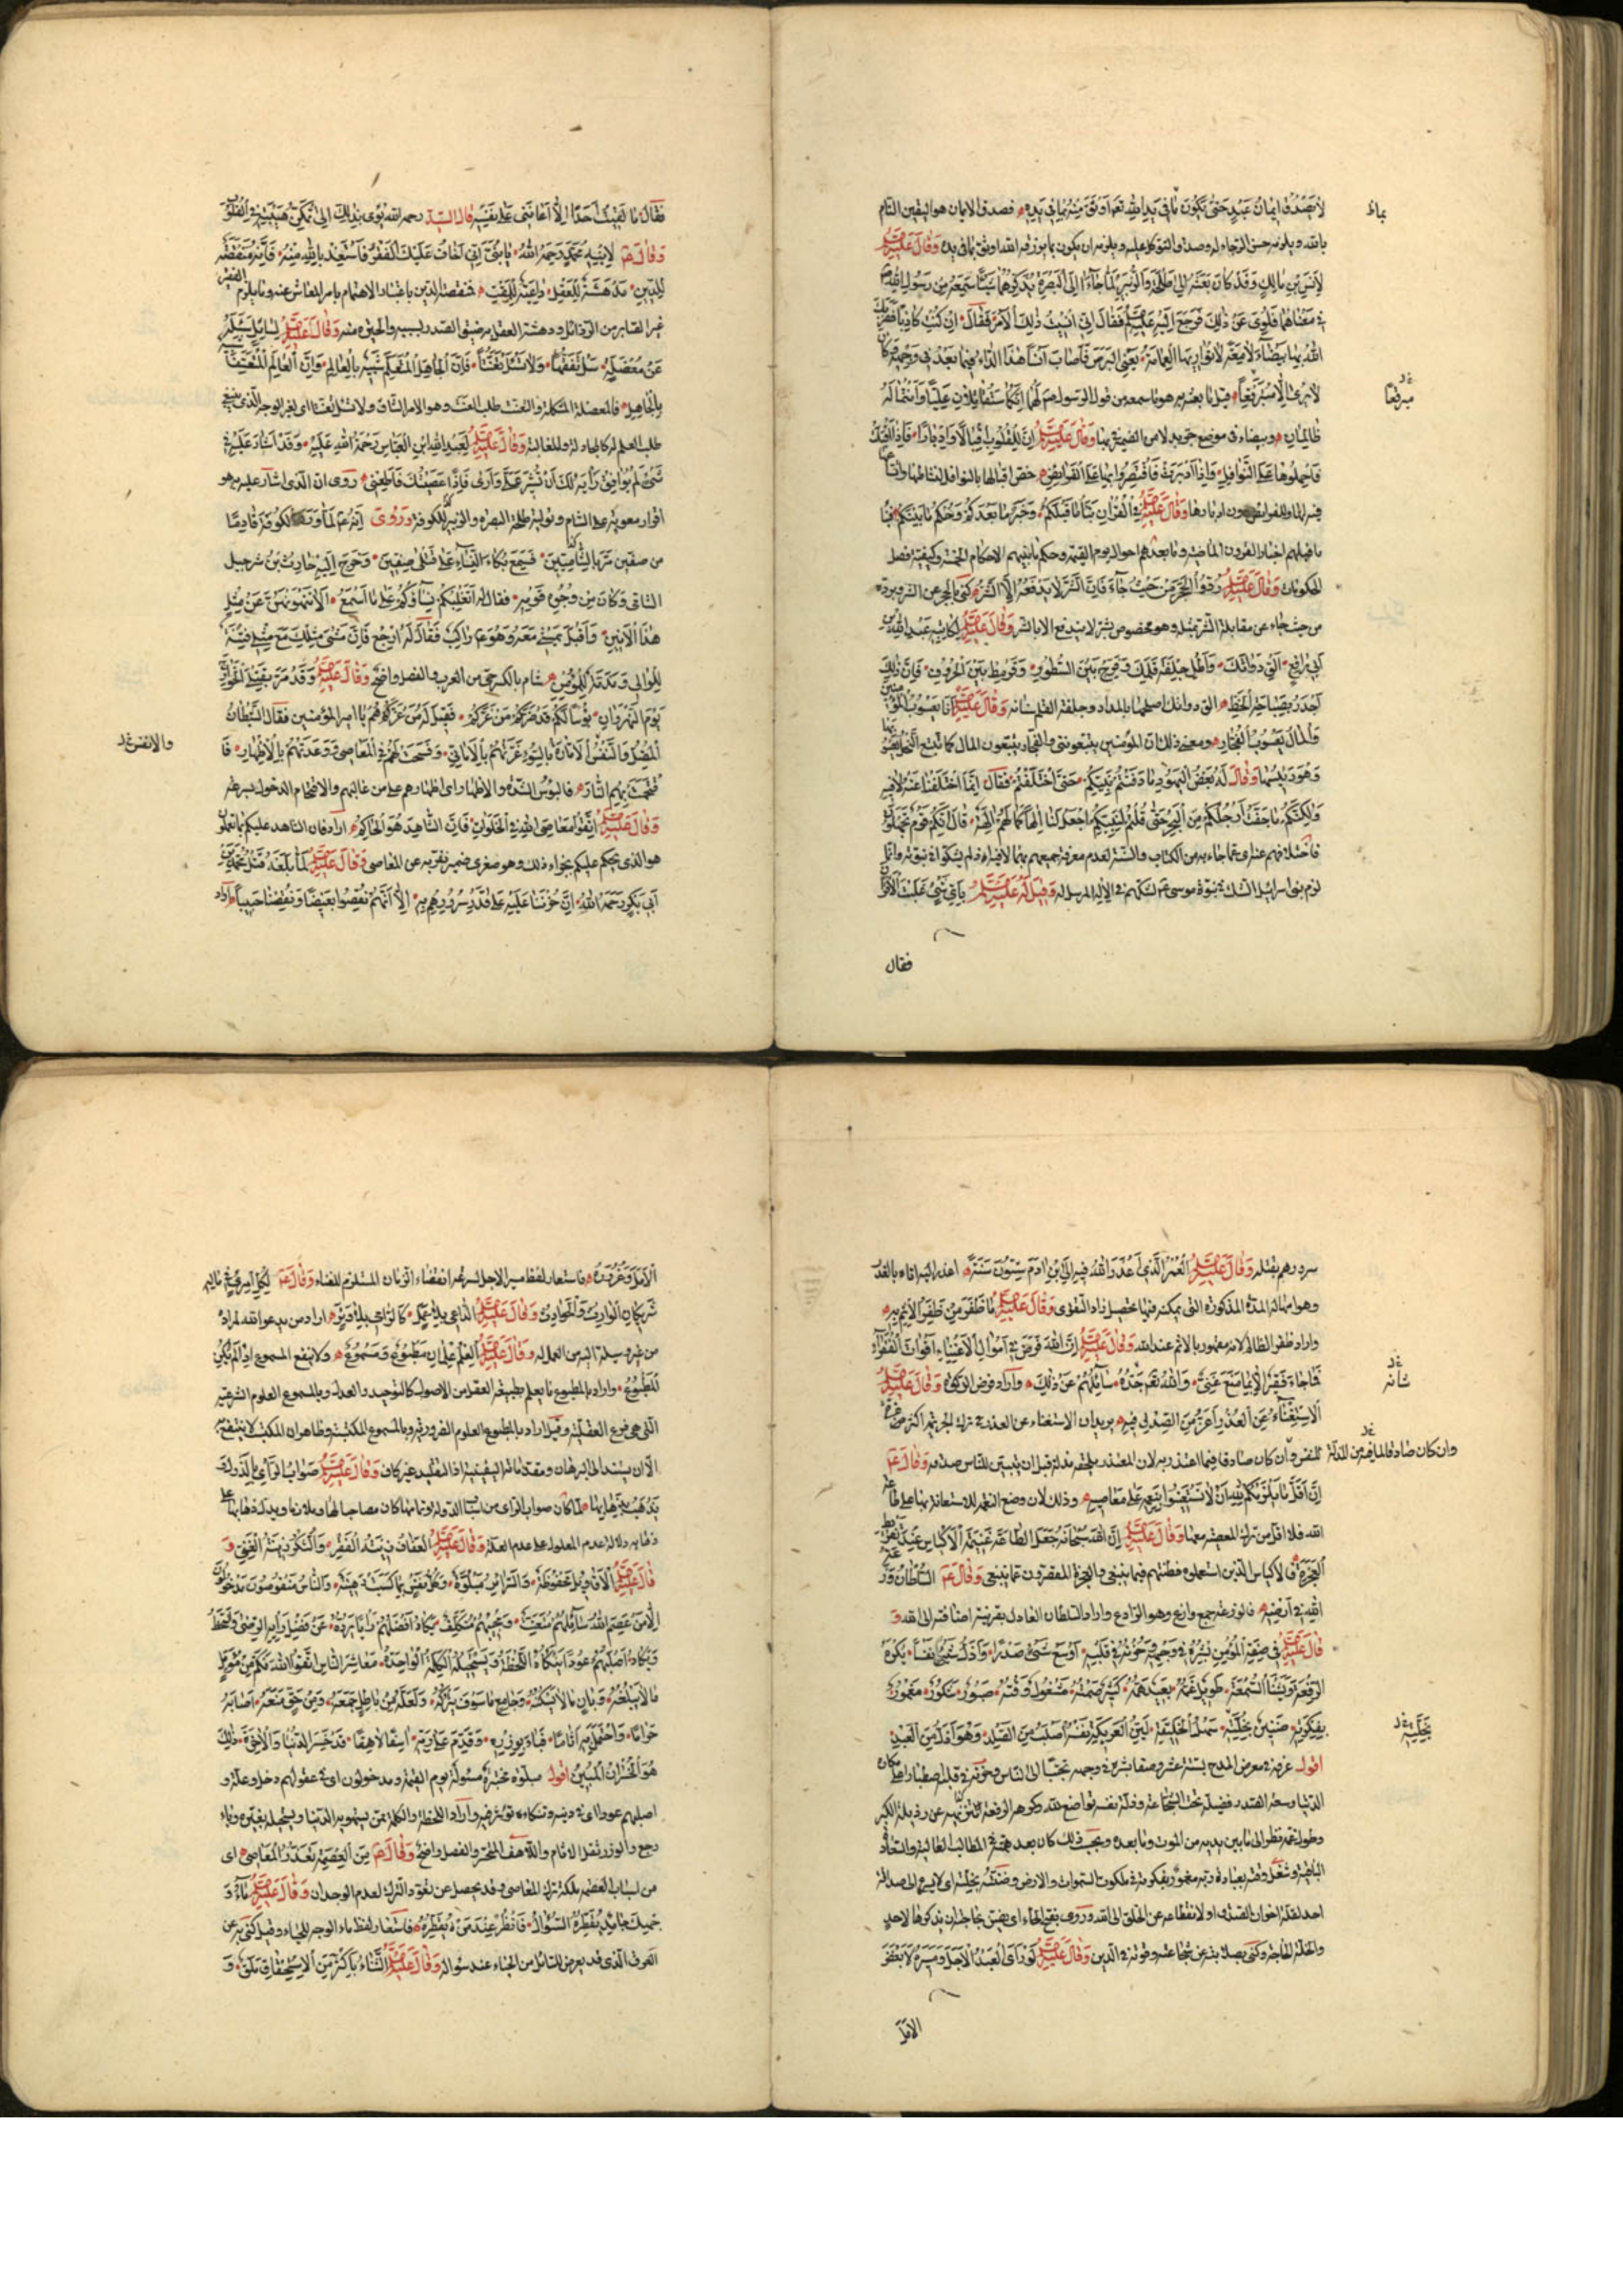 لا يصدق ايمان عبد حتى يكون بما فى يد الله تعم اوثق منه بما فى يده فصدق الايمان هو اليقين التام
بالله ويلزمه حسن الرجاء له وصدق التوكل عليه ويلزمه ان يكون بما يرزقه الله اوثق بما فى يده وقال عليه السلم
لانس بن مالك وقد كان بعثه الى طلحة والزبير لما جاءا الى البصرة يذكرهما شيئا سمعه من رسول الله
فى معناهما فلوى عن ذلك فرجع اليه عليه السلم فقال انى انسيت ذلك الامر فقال ان كنت كاذبا فضربك
الله بها بيضاء لامعة لا تواريها العمامة يعنى البرص فاصاب انسا هذا الداء فيما بعد فى وجهه فكان
لا يرى الا مبرقعا قيل ما بعثه به هو ما سمعه من قول الرسول صم لهما انكما ستقاتلان عليا وانتما له
ظالمان وبيضاء فى موضع جر بدلا من الضمير فى بها وقال عليه السلم ان للقلوب اقبالا وادبارا فاذا اقبلت
فاحملوها على النوافل واذا ادبرت فاقتصروا بها على الفرائض خص اقبالها بالنوافل لنشاطها
وقال عليه السلم فى القران نبأ ما قبلكم وخبر ما بعدكم وحكم ما بينكم
ما قبلهم اخبار القرون الماضية وما بعدهم احوال يوم القيمة وحكم ما بينهم الاحكام الخمسة وكيفية فصل
الحكومات وقال عليه السلم ردوا الحجر من حيث جاء فان الشر لا يدفعه الا الشر كنى بالحجر عن الشر وبرده
من حيث جاء عن مقابلة الشر بمثله وهو مخصوص بشر لا يندفع الا بالشر وقال عليه السلم لكاتبه عبيد الله بن
ابى رافع الق دواتك واطل جلفة قلمك وفرج بين السطور وقرمط بين الحروف فان ذلك
اجدر بصباحة الخط الق دواتك اصلحها بالمداد وجلفة القلم سنانه وقال عليه السلم انا يعسوب المؤمنين
والمال يعسوب الفجار ومعنى ذلك ان المؤمنين يتبعوننى والفجار يتبعون المال كما تتبع النحل يعسوبها
وهو رئيسها وقال له بعض اليهود ما دفنتم نبيكم حتى اختلفتم فقال انما اختلفنا عنه لا فيه
ولكنكم ما جفت ارجلكم من البحر حتى قلتم لنبيكم اجعل لنا الها كما لهم الهة قال انكم قوم تجهلون
فاختلافهم عنه اى عما جاء به من الكتاب والسنة لعدم معرفة جميعهم بهما لا فيه اذ لم يشكوا فى نبوته وانما
لزم بنى اسرائيل الشك فى نبوة موسى عم لشكهم فى الاله المرسل له وقيل له عليه السلم باى شئ غلبت الاقران
فقال
بما ط
مبرقعا
فقال ما لقيت احدا الا اعاننى على نفسه قال السيد رحمه الله يومى بذلك الى تمكن هيبته فى القلوب
وقال عم لابنه محمد رحمه الله يا بنى انى اخاف عليك الفقر فاستعذ بالله منه فان الفقر منقصة
للدين مدهشة للعقل داعية للمقت فنقصه للدين باعتبار الاهتمام بامر المعاش عنه وما يلزم
غير الصابر من الرذائل ودهشة العقل من ضيق الصدر بسببه والحيرة منه وقال عليه السلم لسائل سأله
عن معضلة سل تفقها ولا تسئل تعنتا فان الجاهل المتعلم شبيه بالعالم وان العالم المتعنت شبيه
بالجاهل فالمعضلة المشكلة والتعنت طلب العنت وهو الامر الشاق ولا تسئل تعنتا اى لغير الوجه الذى ينبغى
طلب العلم له كالمجادلة والمغالبة وقال عليه السلم لعبد الله ابن العباس رحمة الله عليه وقد اشار عليه فى
شئ لم يوافق رأيه لك ان تشير على وارى فاذا عصيتك فاطعنى روى ان الذى اشار عليه به هو
اقرار معوية على الشام وتولية طلحة البصرة والزبير الكوفة وروى انه عم لما ورد الكوفة قادما
من صفين مر بالشاميين فسمع بكاء النساء على قتلى صفين وخرج اليه حارث بن شرحبيل
الشاقى وكان من وجوه قومه فقال له اتغلبكم نساؤكم على ما اسمع الا تنهونهن عن مثل
هذا الانين واقبل يمشى معه وهو عم راكب فقال له ارجع فان مشى مثلك مع مثلى فتنة
للوالى ومذلة للمؤمن شبام بالكسر حى من العرب والفصل واضح وقال عليه السلم وقد مر بقتلى الخوارج
يوم النهروان بؤسا لكم قد ضركم من غركم فقيل له من غرهم يا امير المؤمنين فقال الشيطان
المضل والنفس الامارة بالسوء غرتهم بالامانى وفسحت لهم فى المعاصى ووعدتهم بالاظهار
فاقتحمت بهم النار فالبؤس الشدة والاظهار اى اظهارهم على من غالبهم والاقتحام الدخول بسرعة
وقال عليه السلم اتقوا معاصى الله فى الخلوات فان الشاهد هو الحاكم اراد فان الشاهد عليكم بما تعملون
هو الذى يحكم عليكم بجزاء ذلك وهو صغرى ضمير نفر به عن المعاصى وقال عليه السلم لما بلغه قتل محمد بن
ابى بكر رحمه الله ان حزننا عليه على قدر سرورهم به الا انهم نقصوا بغيضا ونقصنا حبيبا اراد
والانفس
سرورهم بقتله وقال عليه السلم العمر الذى اعذر الله فيه الى ابن ادم ستون سنة اعذر اليه اتاه بالعذر
وهو امهاله المدة المذكورة التى يمكنه فيها تحصيل زاد التقوى وقال عليه السلم ما ظفر من ظفر الاثم به
واراد ظفر الظالم لانه مغمور بالاثم عند الله وقال عليه السلم ان الله فرض فى اموال الاغنياء اقوات الفقراء
فما جاع فقير الا بما منع غنى والله تعم جده سائلهم عن ذلك واراد فرض الزكوة وقال عليه السلم
الاستغناء عن العذر اعز من الصدق فيه يريد ان الاستغناء عن العذر فى ترك الجريمة اكثر
للنفس وان كان صادقا فيما اعتذر به لان المعتذر يلحقه مذلة قبل ان يتبين للناس صدقه وقال عم
ان اقل ما يلزمكم لله ان لا تستعينوا بنعمه على معاصيه وذلك لان وضع النعم للاستعانة بها على طاعة
الله فلا اقل من ترك المعصية معها وقال عليه السلم ان الله سبحانه جعل الطاعة غنيمة الاكياس عند تفريط
العجزة فالاكياس الذين استعملوا فطنتهم فيما ينبغى والعجزة المقصرون عما ينبغى وقال عم السلطان وزعة
الله فى ارضه فالوزعة جمع وازع وهو الرادع واراد السلطان العادل بقرينة اضافته الى الله و
قال عليه السلم فى صفة المؤمن بشره فى وجهه وحزنه فى قلبه اوسع شئ صدرا واذل شئ نفسا يكره
الرفعة ويشنأ السمعة طويل غمه بعيد همه كثير صمته مشغول وقته صبور شكور مغمور
بفكرته ضنين بخلته سهل الخليقة لين العريكة نفسه اصلب من الصلد وهو اذل من العبد
اقول عرفه فى معرض المدح بستة عشر وصفا بشره فى وجهه تحببا الى الناس وحزنه فى قلبه
وطول غمه نظرا الى ما بين يديه من الموت وما بعده
احد لقلة اخوان الصدق او لانقطاعه عن الخلق الى الله
والخلة الحاجة وكنى بصلابته عن شجاعته وقوته فى الدين وقال عليه السلم لو رأى العبد الاجل ومسيره لابغض
الامل
شانه
وان كان صادقا
بخلته
الامل وغروره فاستعار لفظ مسير الاجل لسرعة انقضاء الزمان المستلزم للفناء وقال عم لكل امرئ فى ماله
شريكان الوارث والحوادث وقال عليه السلم الداعى بلا عمل كالرامى بلا وتر اراد من يدعو الله لمراده
من غير وسيلة اليه من العمل له وقال عليه السلم العلم علمان مطبوع ومسموع ولا ينفع المسموع اذا لم يكن
المطبوع واراد بالمطبوع ما يعلم طبيعة العقل من الاصول كالتوحيد والعدل وبالمسموع العلوم الشرعية
التى هى فرع العقلية وقيل اراد بالمطبوع العلوم الضرورية وبالمسموع المكتسبة وظاهر ان المكتسب لا ينتفع به
الا ان يستند الى البرهان ومقدماته اليقينية اذ التقليد غير كاف وقال عليه السلم صواب الرأى بالدول
يذهب بذهابها لما كان صواب الرأى من اسباب الدولة
ذهابه دلالة عدم المعلول على عدم العلة وقال عليه السلم العفاف زينة الفقر والشكر زينة الغنى و
قال عليه السلم الاقاويل محفوظة والسرائر مبلوة وكل نفس بما كسبت رهينة والناس منقوصون مدخولون
الا من عصم الله سائلهم متعنت ومجيبهم متكلف يكاد افضلهم رأيا يرده عن فضل رأيه الرضى والسخط
ويكاد اصلبهم عودا تنكأه اللحظة وتستحيله الكلمة الواحدة معاشر الناس اتقوا الله فكم من مؤمل
ما لا يبلغه وبان ما لا يسكنه وجامع ما سوف يتركه ولعله من باطل جمعه ومن حق منعه اصابه
حراما واحتمل به اثاما فباء بوزره وقدم على ربه اسفا لاهفا قد خسر الدنيا والاخرة ذلك
هو الخسران المبين اقول مبلوة مختبرة مسئولة يوم القيمة ومدخولون اى فى عقولهم دخل وعلة و
اصلبهم عودا اى فى دينه وتنكاه تؤثر فيه واراد اللحظة والكلمة ممن يستهويه الدنيا ويستحيله يغيره وباء
رجع والوزر ثقل الاثام واللاهف المتحسر والفصل واضح وقال عم من العصمة تعذر المعاصى اى
من اسباب العصمة ملكة ترك المعاصى وقد يحصل عن تعود الترك لعدم الوجدان وقال عليه السلم ماء و
جهك جامد يقطره السؤال فانظر عند من تقطره فاستعار لفظ ماء الوجه للحياء وقيل كنى به عن
العرق الذى قد يعرض للسائل من الحياء عند سؤاله وقال عليه السلم الثناء باكثر من الاستحقاق ملق و